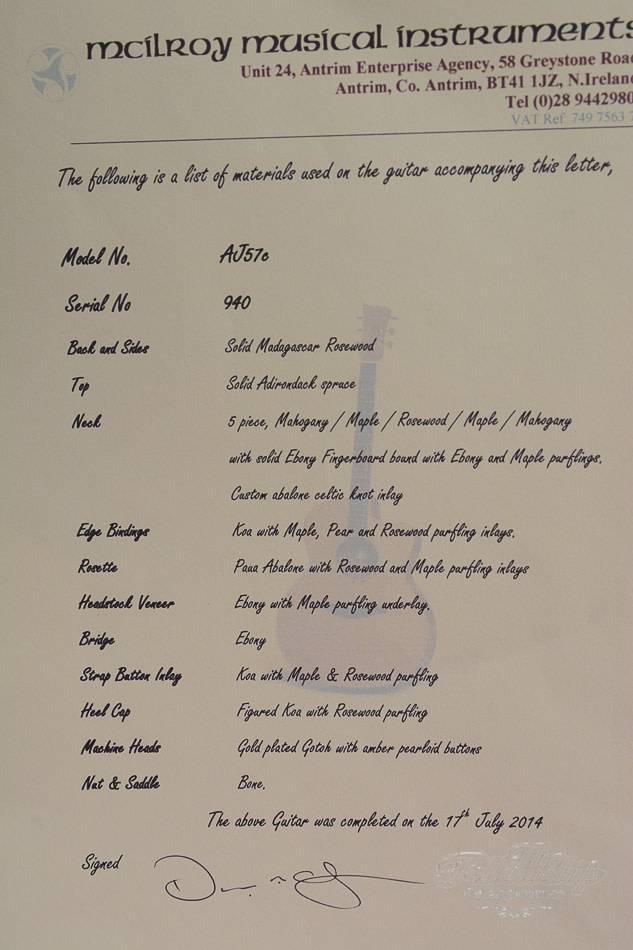 mcilroy musical instruments
Unit 24, Antrim Enterprise Agency, 58 Greystone Road
Antrim, Co. Antrim, BT41 1JZ, N.Ireland
Tel (0)28 9442980
VAT Ref 749 7563
The following is a list of materials used on the guitar accompanying this letter,
Model No. AJ57c
Serial No 940
Back and Sides Solid Madagascar Rosewood
Top Solid Adirondack spruce
Neck 5 piece, Mahogany / Maple / Rosewood / Maple / Mahogany
with solid Ebony Fingerboard bound with Ebony and Maple purflings.
Custom abalone celtic knot inlay
Edge Bindings Koa with Maple, Pear and Rosewood purfling inlays.
Rosette Paua Abalone with Rosewood and Maple purfling inlays
Headstock Veneer Ebony with Maple purfling underlay.
Bridge Ebony
Strap Button Inlay Koa with Maple & Rosewood purfling
Heel Cap Figured Koa with Rosewood purfling
Machine Heads Gold plated Gotoh with amber pearloid buttons
Nut & Saddle Bone.
The above Guitar was completed on the 17th July 2014
Signed